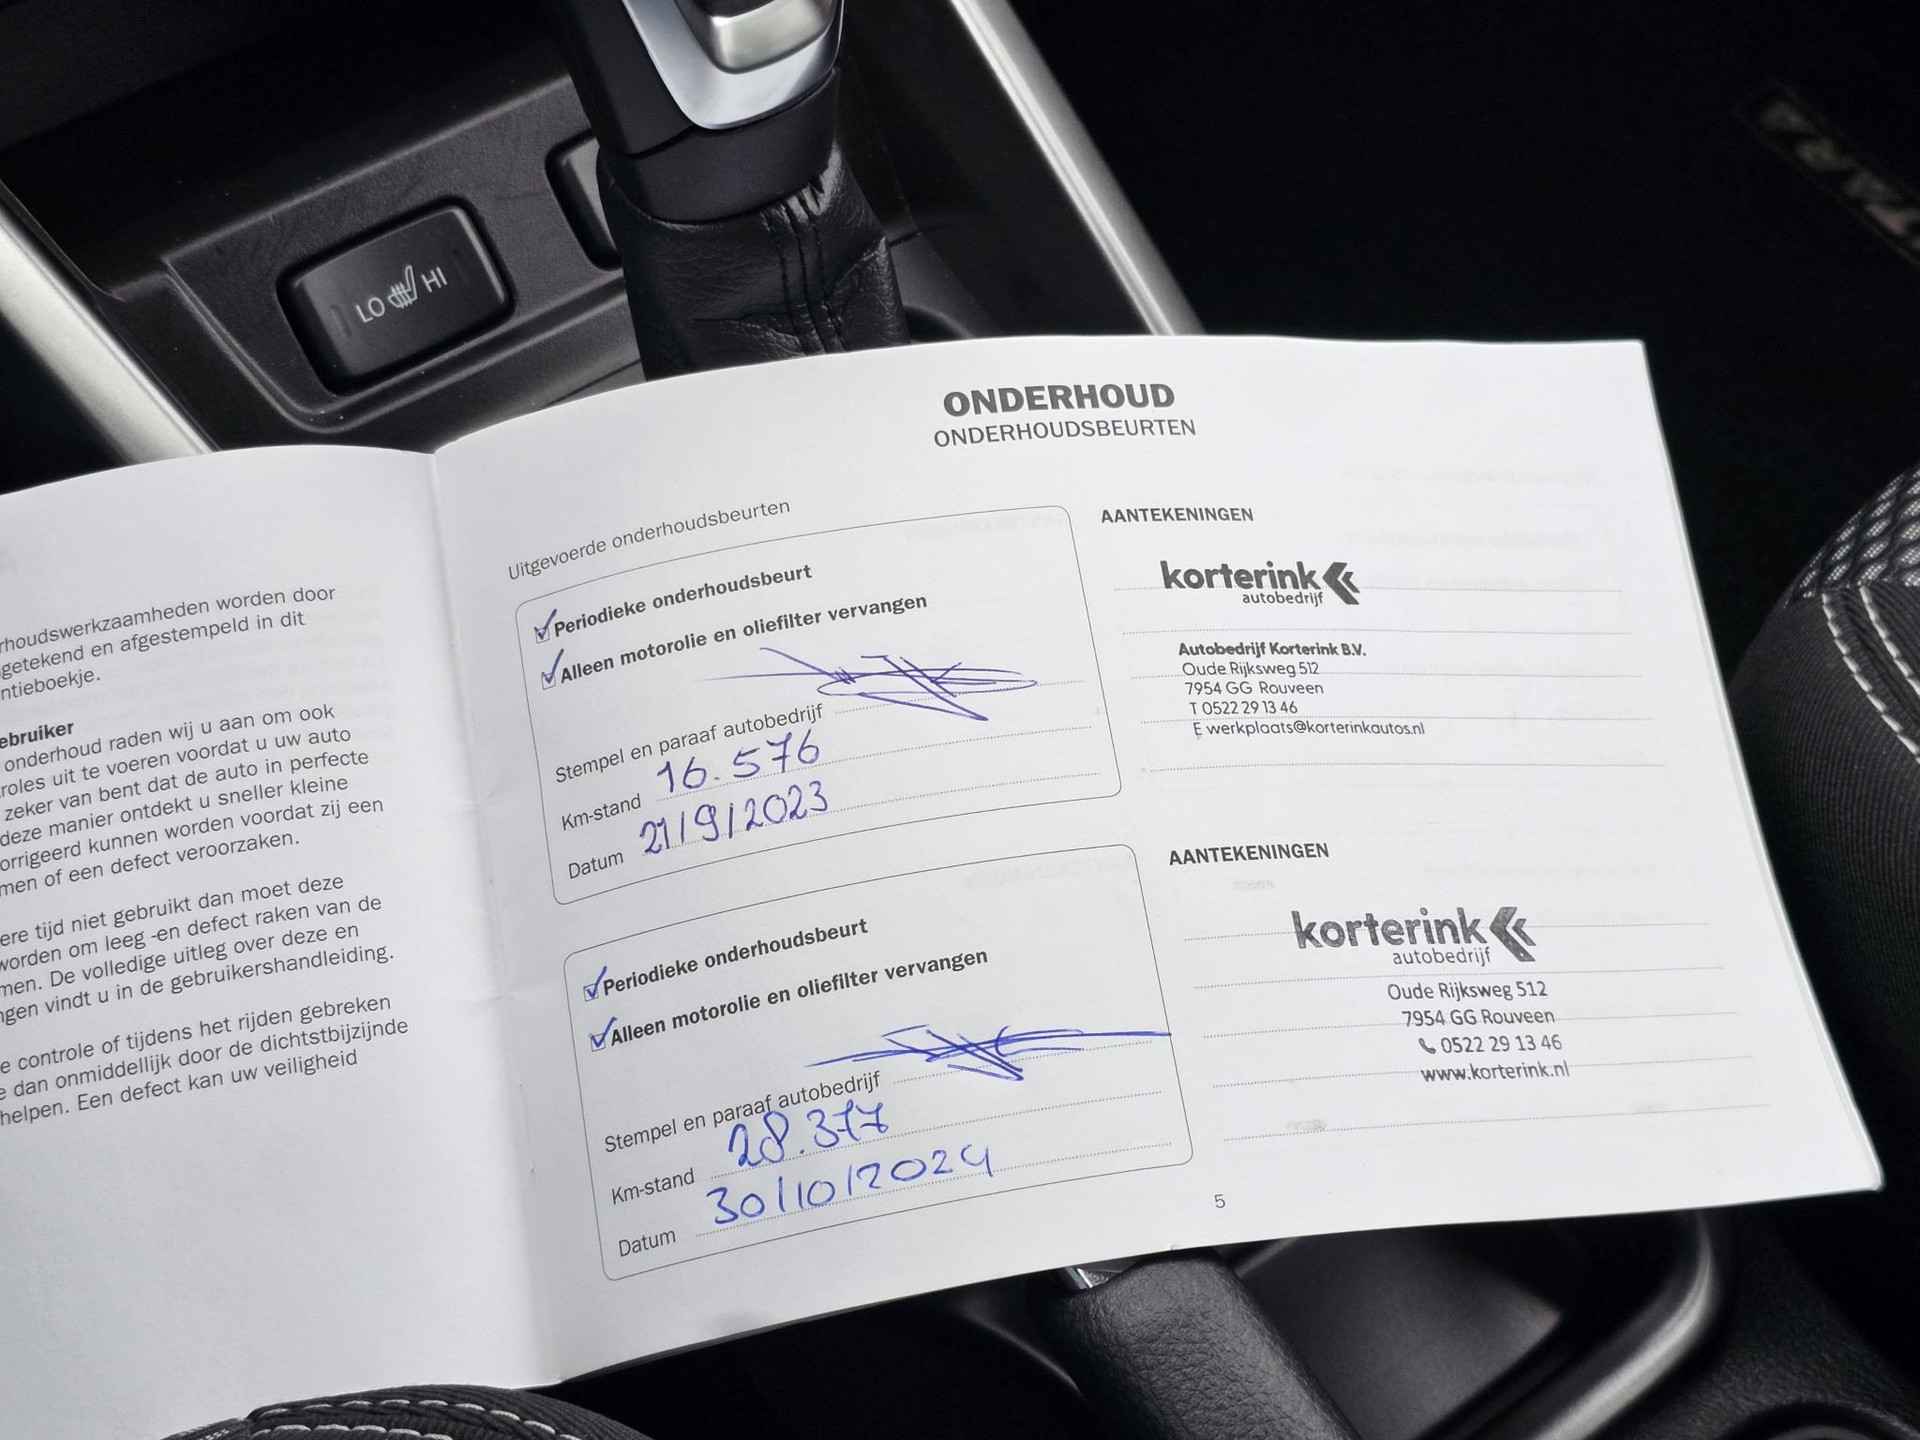 LO HI
rhoudswerkzaamheden worden door
getekend en afgestempeld in dit
ntieboekje.
ebruiker
onderhoud raden wij u aan om ook
roles uit te voeren voordat u uw auto
zeker van bent dat de auto in perfecte
deze manier ontdekt u sneller kleine
orrigeerd kunnen worden voordat zij een
men of een defect veroorzaken.
ere tijd niet gebruikt dan moet deze
worden om leeg -en defect raken van de
men. De volledige uitleg over deze en
ngen vindt u in de gebruikershandleiding.
e controle of tijdens het rijden gebreken
e dan onmiddellijk door de dichtstbijzijnde
helpen. Een defect kan uw veiligheid
ONDERHOUD
ONDERHOUDSBEURTEN
Uitgevoerde onderhoudsbeurten
Periodieke onderhoudsbeurt
Alleen motorolie en oliefilter vervangen
Stempel en paraaf autobedrijf
Km-stand 16.576
Datum 21/9/2023
AANTEKENINGEN
korterink
autobedrijf
Autobedrijf Korterink B.V.
Oude Rijksweg 512
7954 GG Rouveen
T 0522 29 13 46
E werkplaats@korterinkautos.nl
Periodieke onderhoudsbeurt
Alleen motorolie en oliefilter vervangen
Stempel en paraaf autobedrijf
Km-stand 28.377
Datum 30/10/2024
AANTEKENINGEN
korterink
autobedrijf
Oude Rijksweg 512
7954 GG Rouveen
0522 29 13 46
www.korterink.nl
5